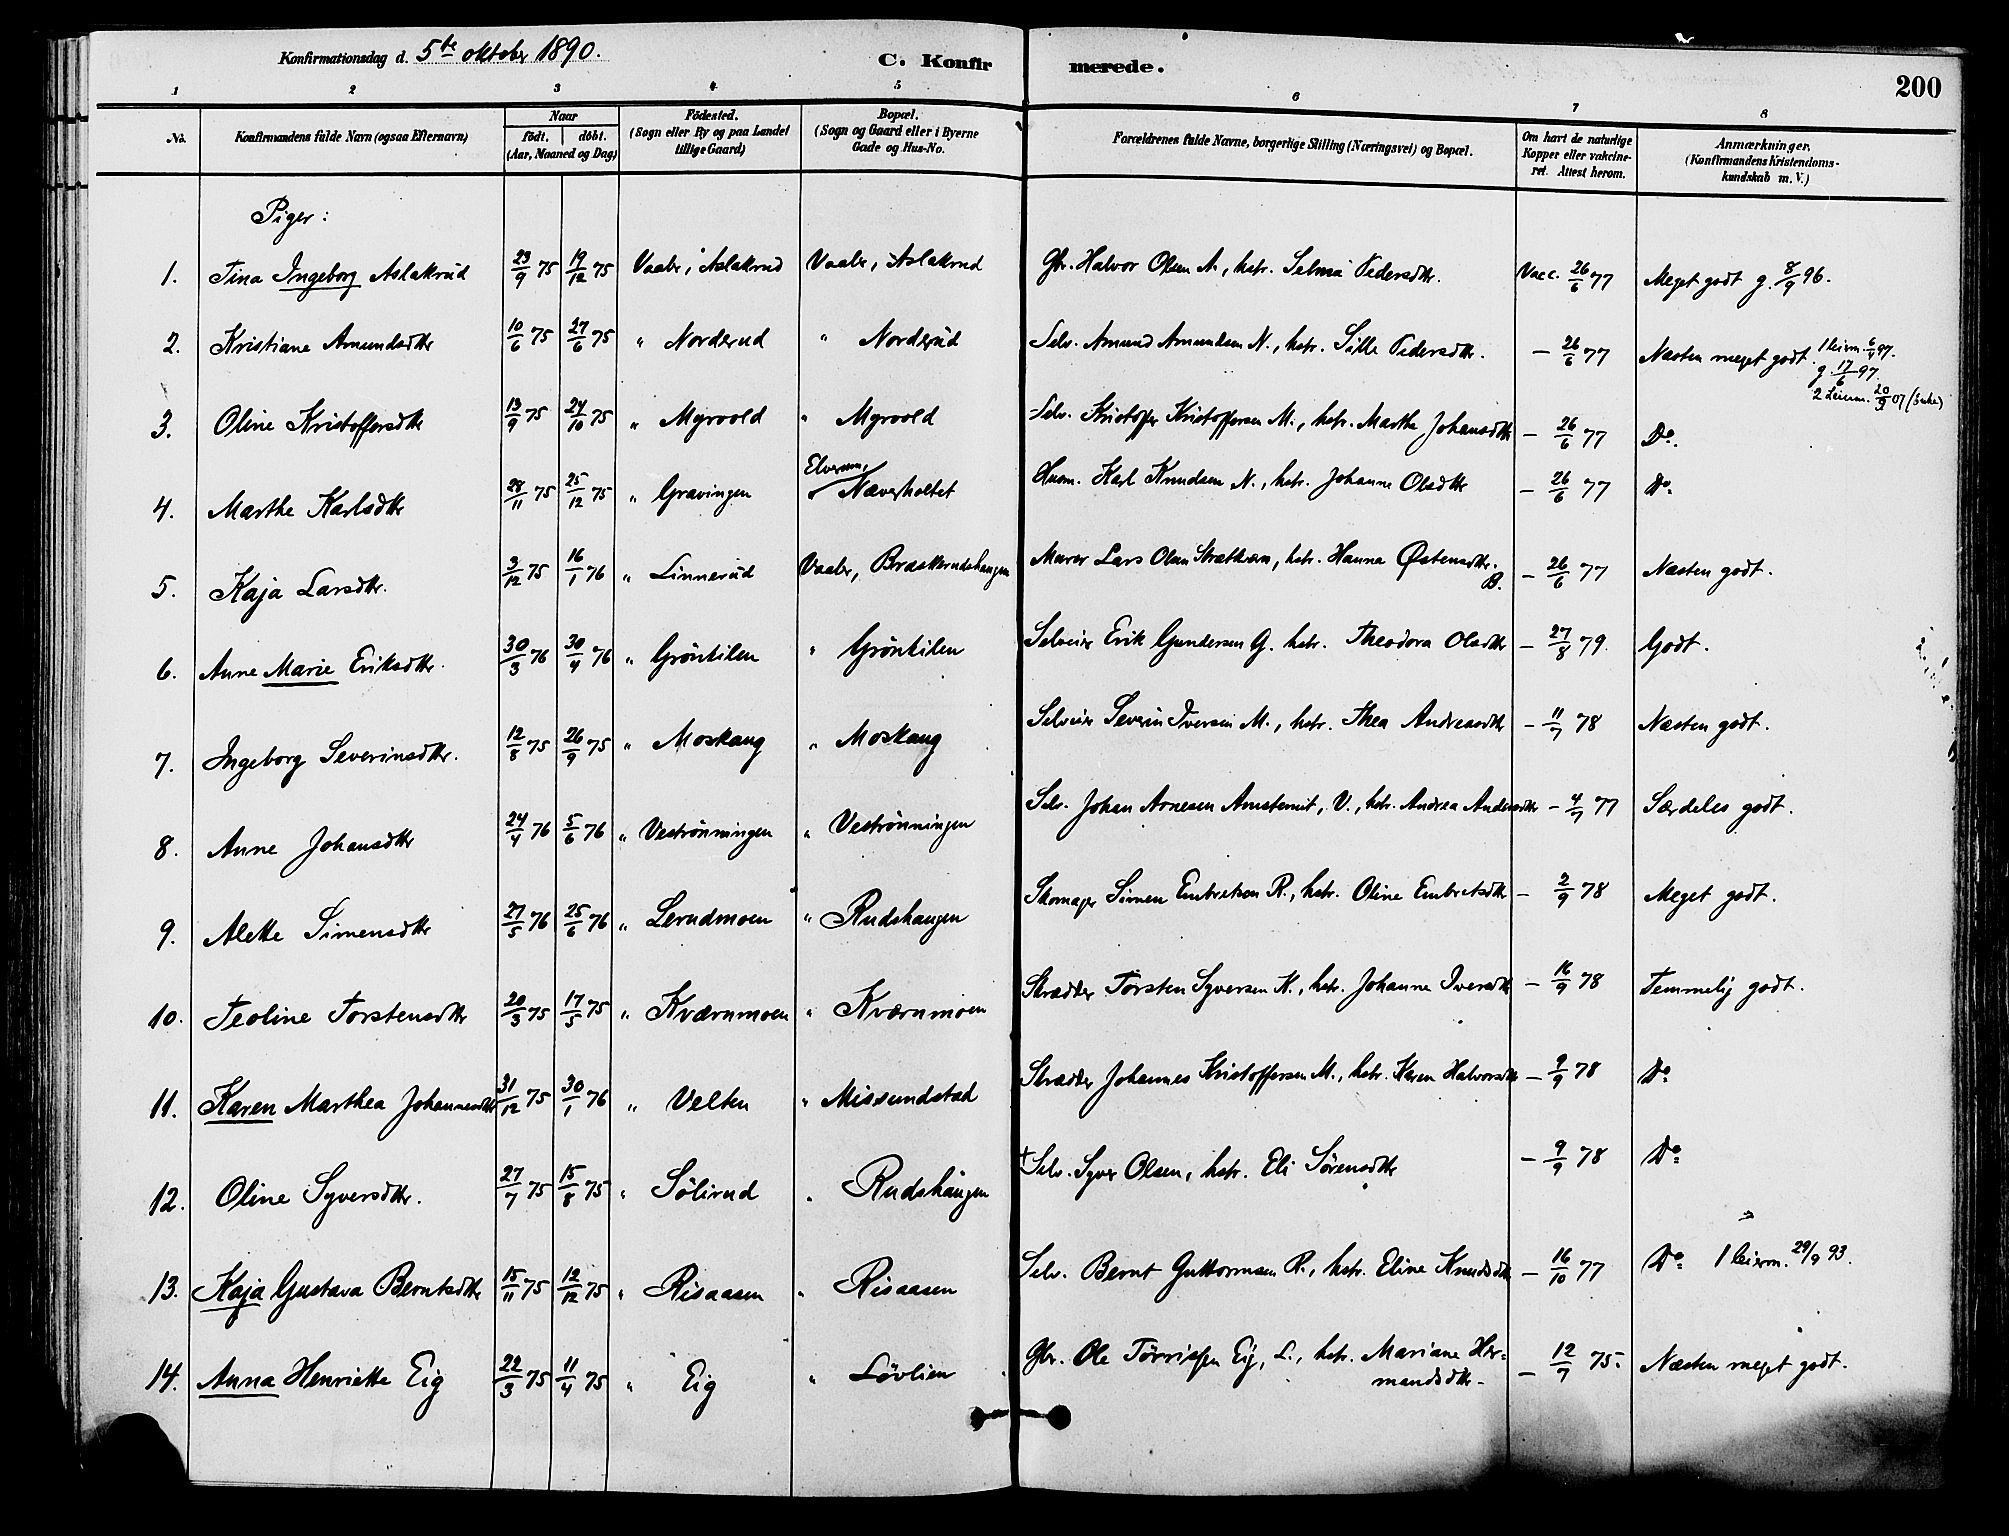 Konfirmationsdag d. 5te oktober 1890.
C. Konfirmerede.
200
1 2 3 4 5 6 7 8
No. Konfirmandens fulde Navn (ogsaa Efternavn) Naar födt. döbt. (Aar, Maaned og Dag) Födested. (Sogn eller By og paa Landet tillige Gaard) Bopæl. (Sogn og Gaard eller i Byerne Gade og Hus-No. Forældrenes fulde Navne, borgerlige Stilling (Næringsvei) og Bopæl. Om havt de naturlige Kopper eller vakcineret. Attest herom. Anmærkninger. (Konfirmandens Kristendomskundskab m. V.)
Piger:
1. Tina Ingeborg Aslakrud 23/9 75 19/12 75 Vaaler, Aslakrud Vaaler, Aslakrud Gbr. Halvor Olsen A., hstr. Selma Pedersdtr. Vacc. 26/6 77 Meget godt g. 8/9 96.
2. Kristiane Amundsdtr 10/6 75 27/6 75 " Norderud " Norderud Selv. Amund Amundsen N., hstr. Sille Pedersdtr. – 26/6 77 Næsten meget godt. 1 leierm. 6/4 97.
g. 17/6 97.
2 Leierm. 20/3 07 (Enke)
3. Oline Kristoffersdtr 13/9 75 24/10 75 " Myrvold " Myrvold Selv. Kristofer Kristoffersen M., hstr. Marthe Johansdtr – 26/6 77 Do.
4. Marthe Karlsdtr 28/11 75 25/12 75 " Gravingen Elverum, Næverholtet Husm. Karl Knudsen N., hstr. Johanne Olsdtr – 26/6 77 Do
5. Kaja Larsdtr. 3/12 75 16/1 76 " Linnerud Vaaler, Braskerudshaugen Murer Lars Olsen, hstr. Hanna Østensdtr. B. – 26/6 77 Næsten godt.
6. Anne Marie Eriksdtr. 30/3 76 30/4 76 " Gröntilen " Gröntilen Selveier Erik Gundersen G. hstr. Theodora Olsdtr – 27/8 79. Godt.
7. Ingeborg Severinsdtr. 12/8 75 26/9 75 " Moskaug " Moskaug Selveier Severin Iversen M., hstr. Thea Andreasdtr – 11/7 78 Næsten godt.
8. Anne Johansdtr 24/4 76 5/6 76 " Veströnningen " Veströnningen Selv. Johan Arnesen, V., hstr. Andrea Andersdtr – 4/7 77 Særdeles godt.
9. Alette Simensdtr 27/5 76 25/6 76 " Lerudmoen " Rudshaugen Skomager Simen Embretsen R., hstr. Oline Embretsdtr – 2/9 78 Meget godt.
10. Teoline Torstensdtr 20/3 75 17/5 75 " Kværnmoen " Kværnmoen Skrædder Torsten Syversen K., hstr. Johanne Iversdtr – 16/9 78 Temmelig godt.
11. Karen Marthea Johannesdtr 31/12 75 30/1 76 " Velten " Missundstad Skrædder Johannes Kristoffersen M., hstr. Karen Halvorsdtr – 9/9 78 Do
12. Oline Syversdtr. 27/7 75 15/8 75 " Sölirud " Rudshaugen † Selv. Syver Olsen, hstr. Eli Sörensdtr – 9/9 78 Do
13. Kaja Gustava Berntsdtr 15/11 75 12/12 75 " Risaasen " Risaasen Selv. Bernt Guttormsen R., hstr. Eline Knudsdtr – 16/10 77 Do 1 leierm. 29/9 93.
14. Anna Henriette Eig 22/3 75 11/4 75 " Eig " Lövlien Gbr. Ole Törrissen Eig, L., hstr. Mariane Hermandsdtr – 12/7 75. Næsten meget godt.